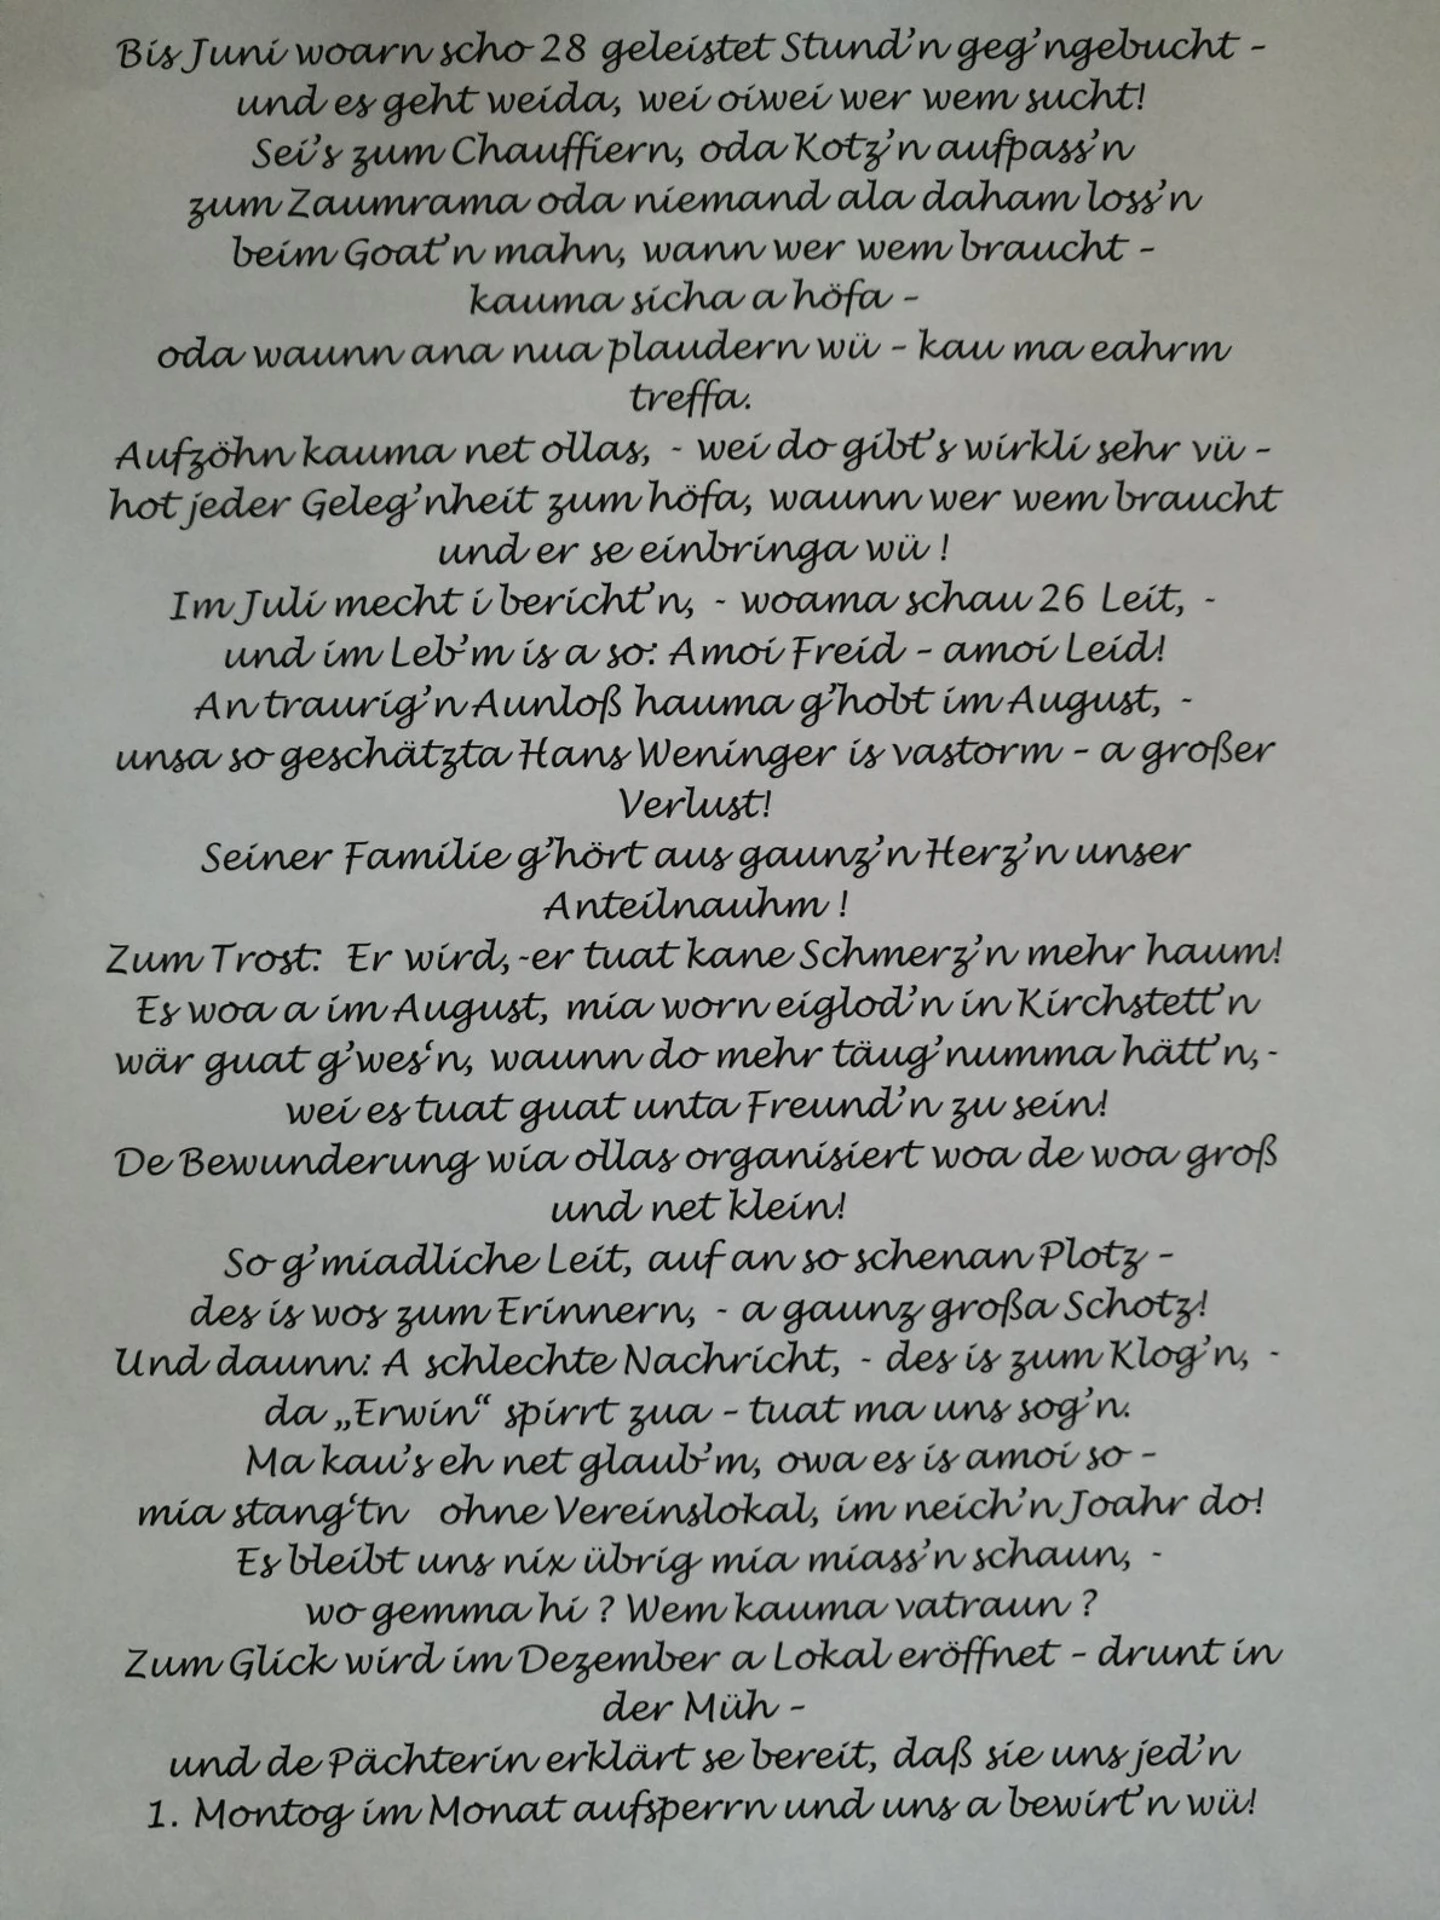 Bis Juni woarn scho 28 geleistet Stund'n geg'ngebucht -
und es geht weida, wei oiwei wer wem sucht!
Sei's zum Chauffiern, oda Kotz'n aufpass'n
zum Zaumrama oda niemand ala daham loss'n
beim Goat'n mahn, wann wer wem braucht -
kauma sicha a höfa -
oda waunn ana nua plaudern wü - kau ma eahrm
treffa.
Aufzöhn kauma net ollas, - wei do gibt's wirkli sehr vü -
hot jeder Geleg'nheit zum höfa, waunn wer wem braucht
und er se einbringa wü !
Im Juli mecht i bericht'n, - woama schau 26 Leit, -
und im Leb'm is a so: Amoi Freid - amoi Leid!
An traurig'n Aunloß hauma g'hobt im August, -
unsa so geschätzta Hans Weninger is vastorm - a großer
Verlust!
Seiner Familie g'hört aus gaunz'n Herz'n unser
Anteilnauhm !
Zum Trost: Er wird, -er tuat kane Schmerz'n mehr haum!
Es woa a im August, mia worn eiglod'n in Kirchstett'n
wär guat g'wes'n, waunn do mehr täug'numma hätt'n, -
wei es tuat guat unta Freund'n zu sein!
De Bewunderung wia ollas organisiert woa de woa groß
und net klein!
So g'miadliche Leit, auf an so schenan Plotz -
des is wos zum Erinnern, - a gaunz großa Schotz!
Und daunn: A schlechte Nachricht, - des is zum Klog'n, -
da „Erwin“ spirrt zua - tuat ma uns sog'n.
Ma kau's eh net glaub'm, owa es is amoi so -
mia stang'tn ohne Vereinslokal, im neich'n Joahr do!
Es bleibt uns nix übrig mia miass'n schaun, -
wo gemma hi ? Wem kauma vatraun ?
Zum Glick wird im Dezember a Lokal eröffnet - drunt in
der Müh -
und de Pächterin erklärt se bereit, daß sie uns jed'n
1. Montog im Monat aufsperrn und uns a bewirt'n wü!